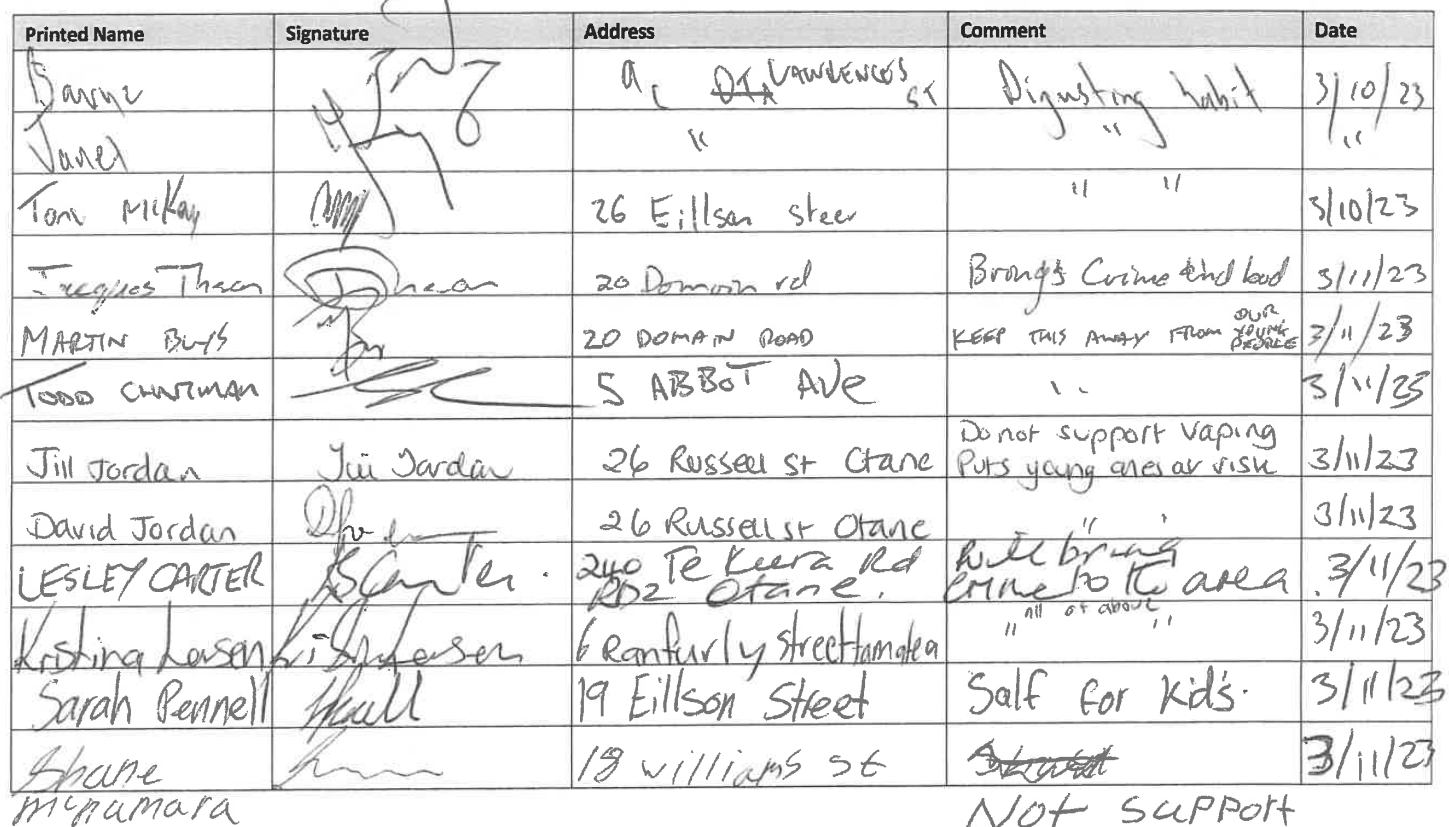 Printed Name Signature Address Comment Date
Disgusting habit 3/10/23
Janel " " "
Tom McKay 26 Eillson steer " " 3/10/23
Jacques Theron 20 Domain rd Brongs Crime and bad 3/11/23
MARTIN BUYS 20 DOMAIN ROAD KEEP THIS AWAY FROM OUR YOUNG PEOPLE 3/11/23
TODD 5 ABBOT AVE " 3/11/23
Jill Jordan Jill Jordan 26 Russell st Otane Do not support vaping
Puts young ones at risk 3/11/23
David Jordan 26 Russell st Otane " 3/11/23
LESLEY CARTER 240 Te Rd
RD2 Otane. will bring
crime to the area . 3/11/23
Kristina 6 Ranfurly street tamatea " all of above " 3/11/23
Sarah Pennell 19 Eillson Street Salf for kid's. 3/11/23
Shane 18 williams st 3/11/23
mcnamara Not support